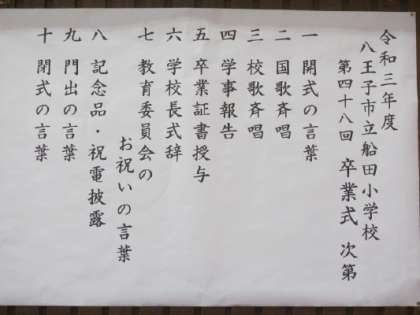 令和三年度
八王子市立船田小学校
第四十八回 卒業式 次第
一 開式の言葉
二 国歌斉唱
三 校歌斉唱
四 学事報告
五 卒業証書授与
六 学校長式辞
七 教育委員会の
お祝いの言葉
八 記念品・祝電披露
九 門出の言葉
十 閉式の言葉